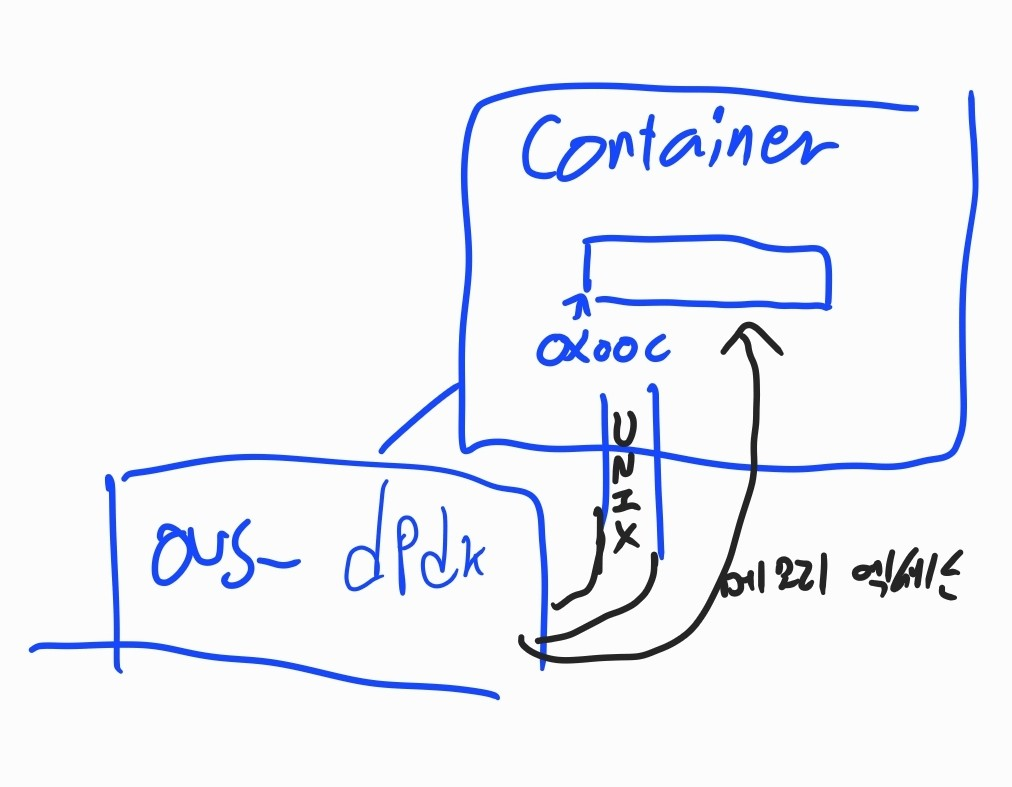 Container
0x00c
UNIX
ovs- dpdk
메모리 엑세스